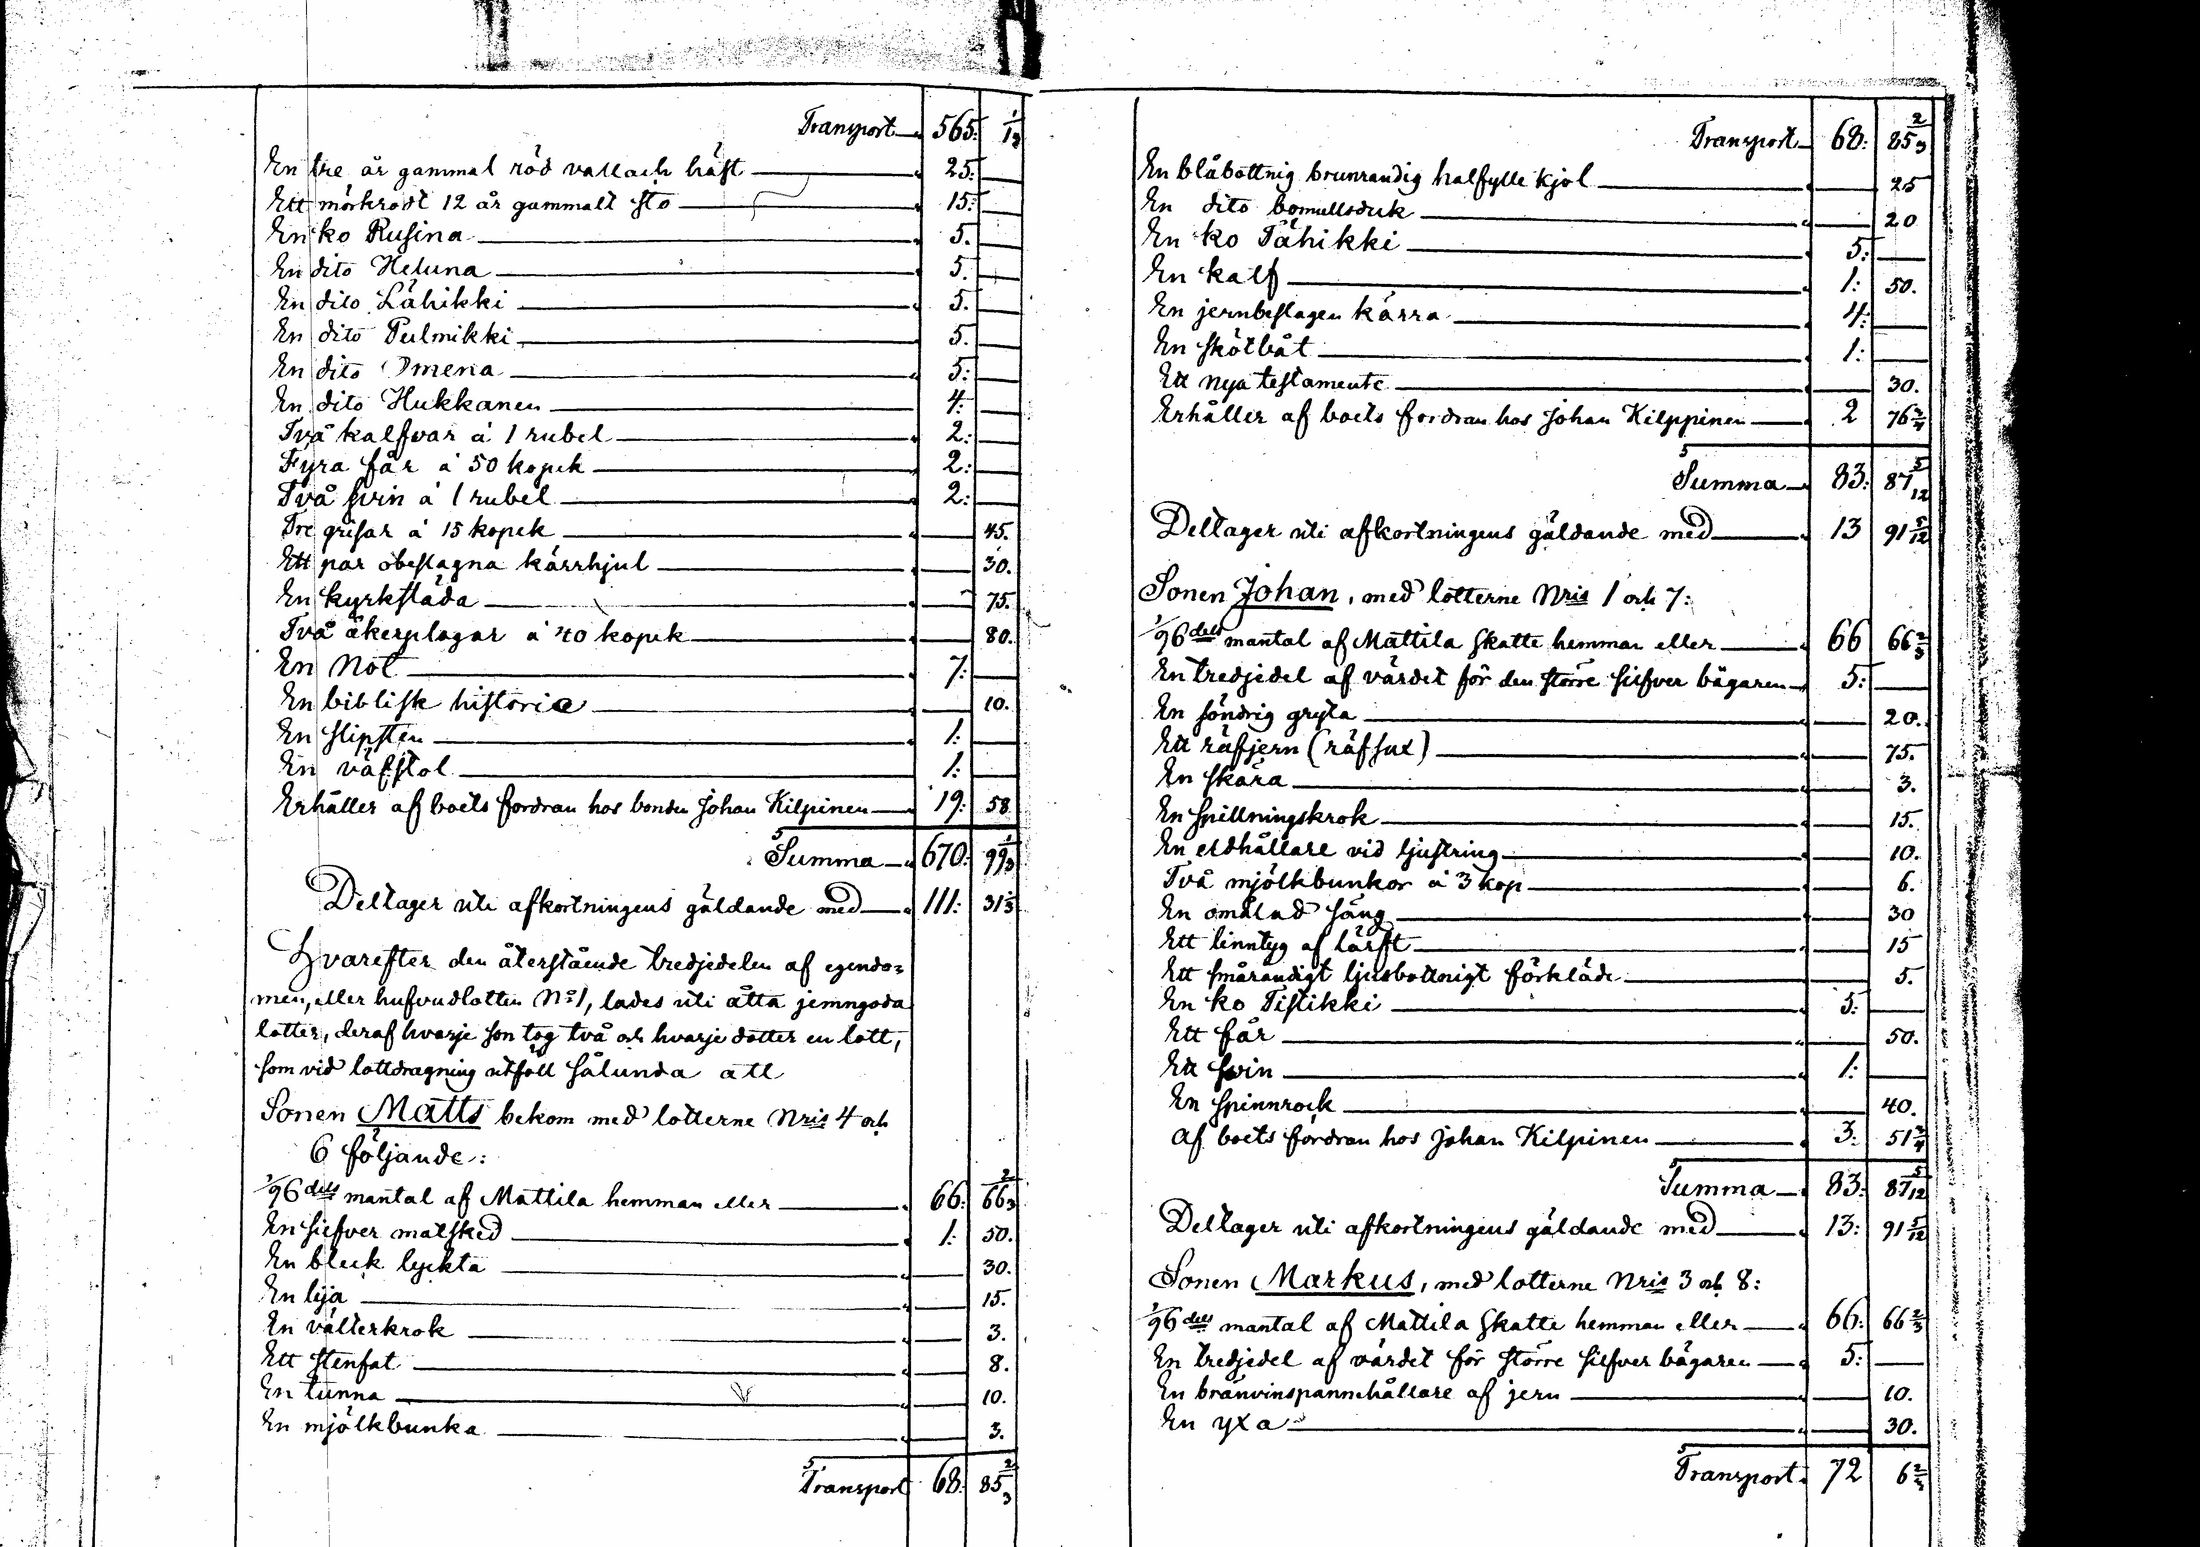 Transport 565: 1/12
En tre år gammal röd vallach häst 25:
Ett mörkrödt 12 år gammalt sto 15:
En ko Rusina 5.
En dito Heluna 5.
En dito Lähikki 5.
En dito Pulmikki 5.
En dito Omena 5:
En dito Hukkanen 4:
Två kalfvar á 1 rubel 2:
Fyra får á 50 kopek 2:
Två svin á 1 rubel 2:
Tre grisar á 15 kopek 45.
Ett par obeslagna kärrhjul 30.
En kyrksläda 75.
Två åkerplogar á 40 kopek 80.
En Not 7:
En biblisk historie 10.
En slipsten 1:
En väfstol 1:
Erhåller af boets fordran hos bonden Johan Kilpinen 19: 58
Summa 670: 99 1/3
Deltager uti afkortningens gäldande med 111: 31 1/3
Hvarefter den återstående tredjedelen af egendo=
men, eller hufvudlotten No 1, lades uti åtta jemngoda
lotter, deraf hvarje son tog två och hvarje dotter en lott,
som vid lottdragning utföll sålunda att
Sonen Matts bekom med lotterne Nris 4 och
6 följande:
1/96 dels mantal af Mattila hemman eller 66: 66 2/3
En silfver matsked 1: 50.
En bleck lyckta 30.
En lija 15.
En välterkrok 3.
Ett stenfat 8.
En tunna 10.
En mjölkbunka 3.
Transport 68: 85 2/3
Transport 68: 85 2/3
En blåbottnig brunrandig halfylle kjol 25
En dito bomullsduk 20
En ko Tähikki 5:
En kalf 1: 50.
En jernbeslagen kärra 4:
En skötbåt 1:
Ett nya testamente 30.
Erhåller af boets fordran hos Johan Kilppinen 2 76 3/4
Summa 83: 87 5/12
Deltager uti afkortningens gäldande med 13 91 5/12
Sonen Johan, med lotterne Nris 1 och 7:
1/96 dels mantal af Mattila skatte hemman eller 66 66 2/3
En tredjedel af värdet för den större silfver bägaren 5:
En söndrig gryta 20.
Ett räfjern (räfsax) 75.
En skära 3.
En spillningskrok 15.
En eldhållare vid ljustring 10.
Två mjölkbunkor á 3 kop 6.
En omålad säng 30
Ett linntyg af lärft 15
Ett smårandigt ljusbottnigt förkläde 5.
En ko Tistikki 5:
Ett får 50.
Ett svin 1:
En spinnrock 40.
af boets fordran hos Johan Kilpinen 3: 51 3/4
Summa 83: 87 5/12
Deltager uti afkortningens gäldande med 13: 91 5/12
Sonen Markus, med lotterne Nris 3 och 8:
1/96 dels mantal af Mattila skatte hemman eller 66: 66 2/3
En tredjedel af värdet för större silfver bägaren 5:
En bränvinspannehållare af jern 10.
En yxa 30.
Transport 72 6 2/3